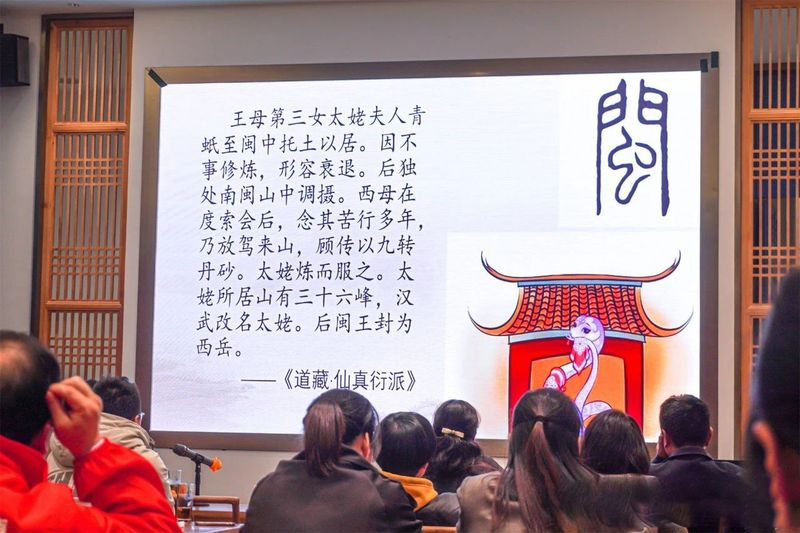 王母第三女太姥夫人青
蚔至闽中托土以居。因不
事修炼，形容衰退。后独
处南闽山中调摄。西母在
度索会后，念其苦行多年，
乃放驾来山，顾传以九转
丹砂。太姥炼而服之。太
姥所居山有三十六峰，汉
武改名太姥。后闽王封为
西岳。
——《道藏·仙真衍派》
閩